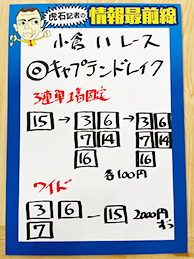 虎石記者の
情報最前線
小倉11レース
◎キャプテンドレイク
3連単1着固定
15→3 6→3 6
7 14 7 14
16 16
各100円
ワイド
3 6 ー 15 2000円
7 ずつ